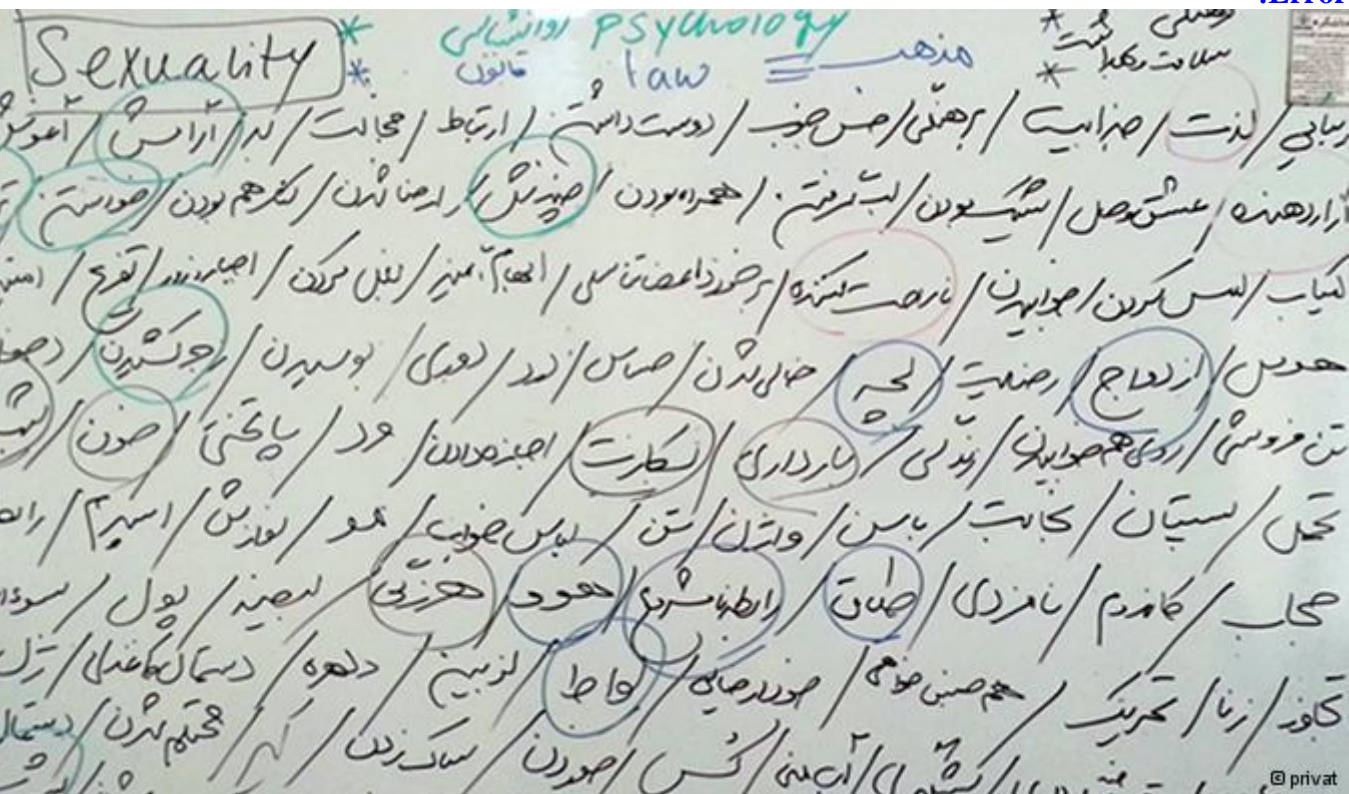 Error.
Sexuality * روانشناسی Psychology * فرهنگی
* قانون law = مذهب * سلامت و بهداشت
زیبایی / لذت / جذابیت / برهنگی / حس خوب / دوست داشتن / ارتباط / خجالت / لبه / آرامش / آغوش
آزاردهنده / عشق وصل / شریک بودن / لب گرفتن / همراه بودن / چندش / ارضا شدن / کنار هم بودن / خواستن
لمس کردن / خوابیدن / ناراحت کننده / برخورد اعضا تناسلی / ابهام آمیز / بغل کردن / اجبار و زور / تفریح
هوس / ازدواج / رضایت / بچه / خالی شدن / حساس / درد / دوری / بوسیدن / زجر کشیدن
تن فروشی / روی هم خوابیدن / زندگی / بارداری / بکارت / اجازه دادن / ور / پاتختی / خون
تحمل / پستان / نجابت / باسن / واژن / تن / لباس خواب / مو / نوازش / اسپرم
حجاب / کاندوم / نامزدی / طلاق / رابطه نامشروع / هوو / هرزگی / پول
تجاوز / زنا / تحریک / هم جنس خواهی / خودارضایی / لواط / لزبین / دلهره / دستمال کاغذی / ژل
آب منی / کس / خوردن / ساک زدن / کیر / محتلم شدن / دستمال
© privat